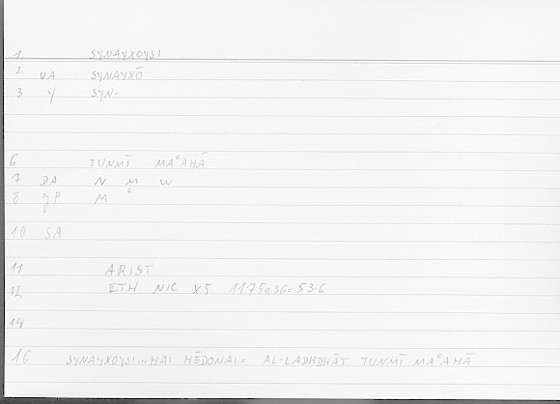 1 SYNAYXOYSI
2 VA SYNAYXŌ
3 Y SYN-
6 TUNMĪ MAᶜAHĀ
7 DA N M W
8 YP M ᶜ
10 SA
11 ARIST
12 ETH NIC X5 1175a36=53.6
14
16 SYNAYXOYSI...HAI HĒDONAI= AL-LADHDHĀT TUNMĪ MAᶜAHĀ